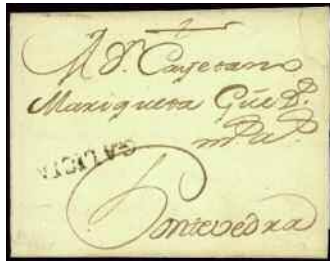 A Dn. Cayetano
Mariquera Gūe Ds.
ms. as.
GALICIA
Pontevedra